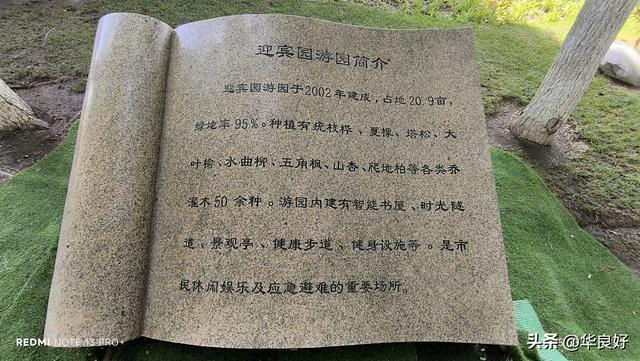 迎宾园游园简介
迎宾园游园于2002年建成，占地20.9亩，
绿地率95%。种植有疣枝桦、夏橡、塔松、大
叶榆、水曲柳、五角枫、山杏、爬地柏等各类乔
灌木50余种。游园内建有智能书屋、时光隧
道、景观亭、健康步道、健身设施等。是市
民休闲娱乐及应急避难的重要场所。
REDMI NOTE 13 PRO+
头条 @华良好